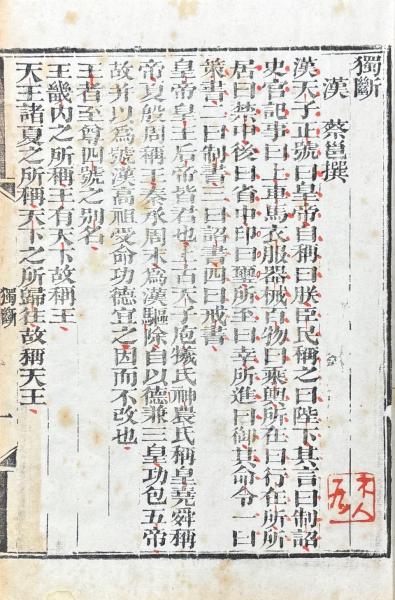 獨斷
漢 蔡邕撰
漢天子正號曰皇帝自稱曰朕臣民稱之曰陛下其言曰制詔
史官記事曰上車馬衣服器械百物曰乘輿所在曰行在所所
居曰禁中後曰省中印曰璽所至曰幸所進曰御其命令一曰
策書二曰制書三曰詔書四曰戒書
皇帝皇王后帝皆君也上古天子庖犧氏神農氏稱皇堯舜稱
帝夏殷周稱王秦承周末為漢驅除自以德兼三皇功包五帝
故并以為號漢高祖受命功德宜之因而不改也
王者至尊四號之別名
王畿內之所稱王有天下故稱王
天王諸夏之所稱天下之所歸往故稱天王
獨斷 一